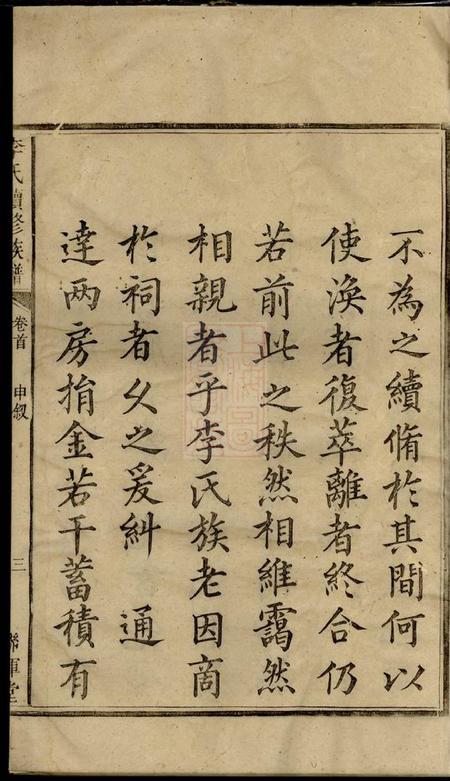 不為之續脩於其間何以
使渙者復萃離者終合仍
若前此之秩然相維靄然
相親者乎李氏族老因商
於祠者久之爰糾　通
達两房捐金若干蓄積有
李氏續修族譜
卷首　申叙
三